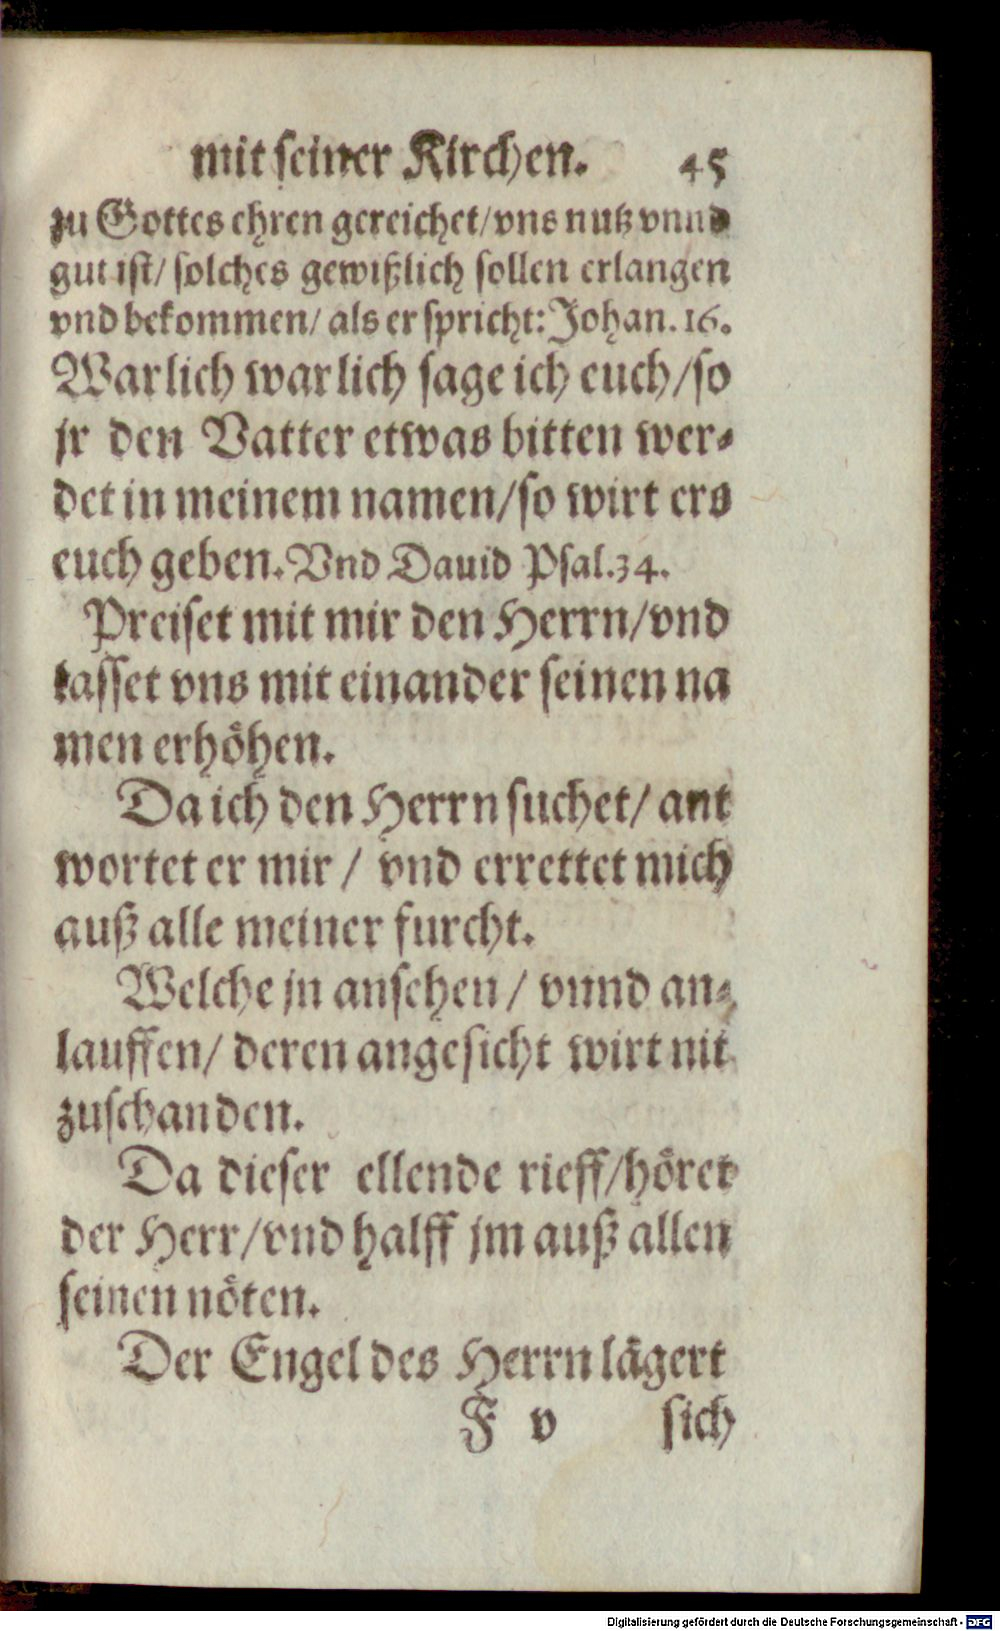 mit seiner Kirchen. 45
zu Gottes ehren gereichet/ vns nutz vnnd
gut ist/ solches gewißlich sollen erlangen
vnd bekommen/ als er spricht: Johan. 16.
Warlich warlich sage ich euch/ so
jr den Vatter etwas bitten wer⸗
det in meinem namen/ so wirt ers
euch geben. Vnd Dauid Psal. 34.
Preiset mit mir den Herrn/ vnd
lasset vns mit einander seinen na
men erhöhen.
Da ich den Herrn suchet/ ant
wortet er mir / vnd errettet mich
auß alle meiner furcht.
Welche jn ansehen / vnnd an⸗
lauffen/ deren angesicht wirt nit
zuschanden.
Da dieser ellende rieff/ höret
der Herr/ vnd halff jm auß allen
seinen nöten.
Der Engel des Herrn lägert
F v sich
Digitalisierung gefördert durch die Deutsche Forschungsgemeinschaft - DFG